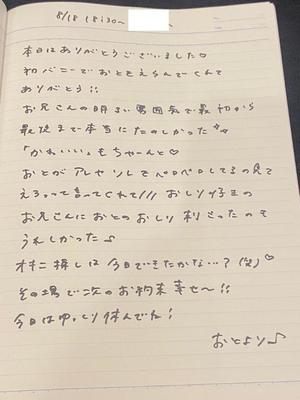 8/18 18:30〜
本日はありがとうございました♡
初バニーでおとをえらんでくれて
ありがとう!!
お兄さんの明るい雰囲気で最初から
最後まで本当にたのしかった
「かわいい」もちゃーんと♡
おとがアレやソレでペロペロしてるの見て
えろって言ってくれて///おしり好きの
お兄さんにおとのおしり刺さったのも
うれしかった♪
探しは今日できたかな…?(笑)♡
その場で次のお約束幸せ〜!!
今日はゆっくり休んでね!
おとより♪